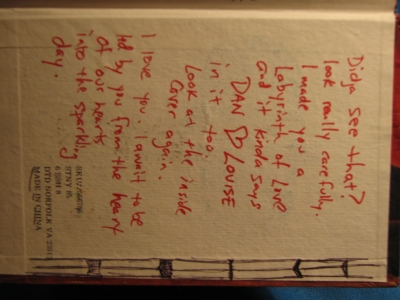 Didja see that?
look really carefully.
I made you a
Labyrinth of Love
and it kinda says
DAN ♡ LOUISE
in it too.
Look at the inside
Cover again.
I love you. I await to be
led by you from the heart
of our hearts
into the sparkling
day.
DTD NORFOLK VA
MADE IN CHINA